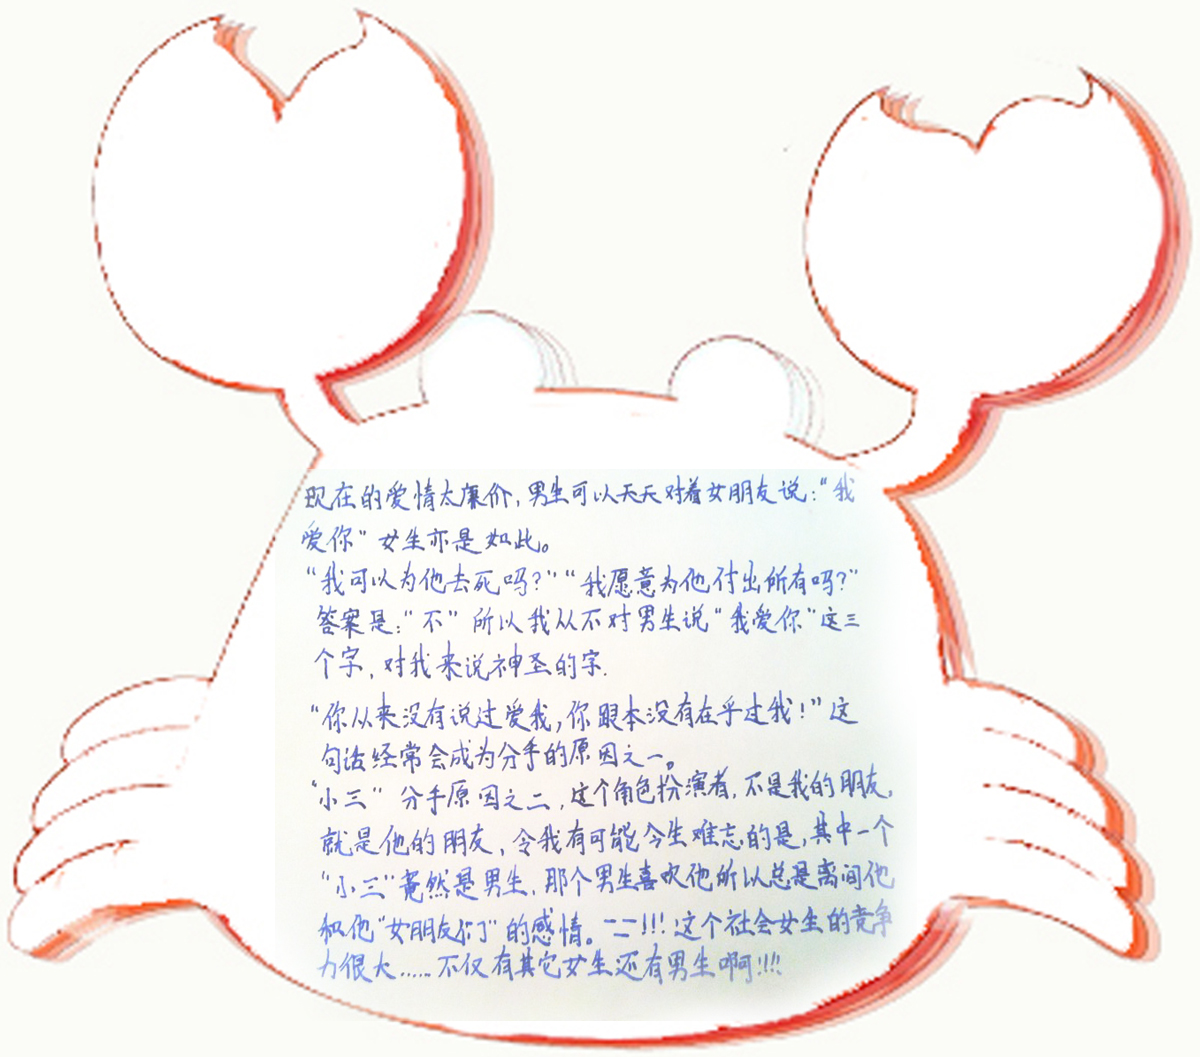 现在的爱情太廉价，男生可以天天对着女朋友说：“我
爱你”女生亦是如此。
“我可以为他去死吗？”“我愿意为他付出所有吗？”
答案是：“不”所以我从不对男生说“我爱你”这三
个字，对我来说神圣的字.
“你从来没有说过爱我，你跟本没有在乎过我！”这
句话经常会成为分手的原因之一。
“小三”分手原因之二，这个角色扮演者，不是我的朋友，
就是他的朋友，令我有可能今生难忘的是，其中一个
“小三”竟然是男生，那个男生喜欢他所以总是离间他
和他“女朋友们”的感情。= =!!!这个社会女生的竞争
力很大……不仅有其它女生还有男生啊!!!